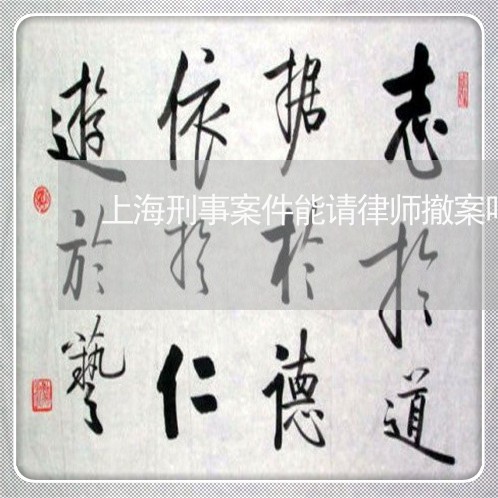 志於道
据於德
依於仁
遊於藝
上海刑事案件能请律师撤案